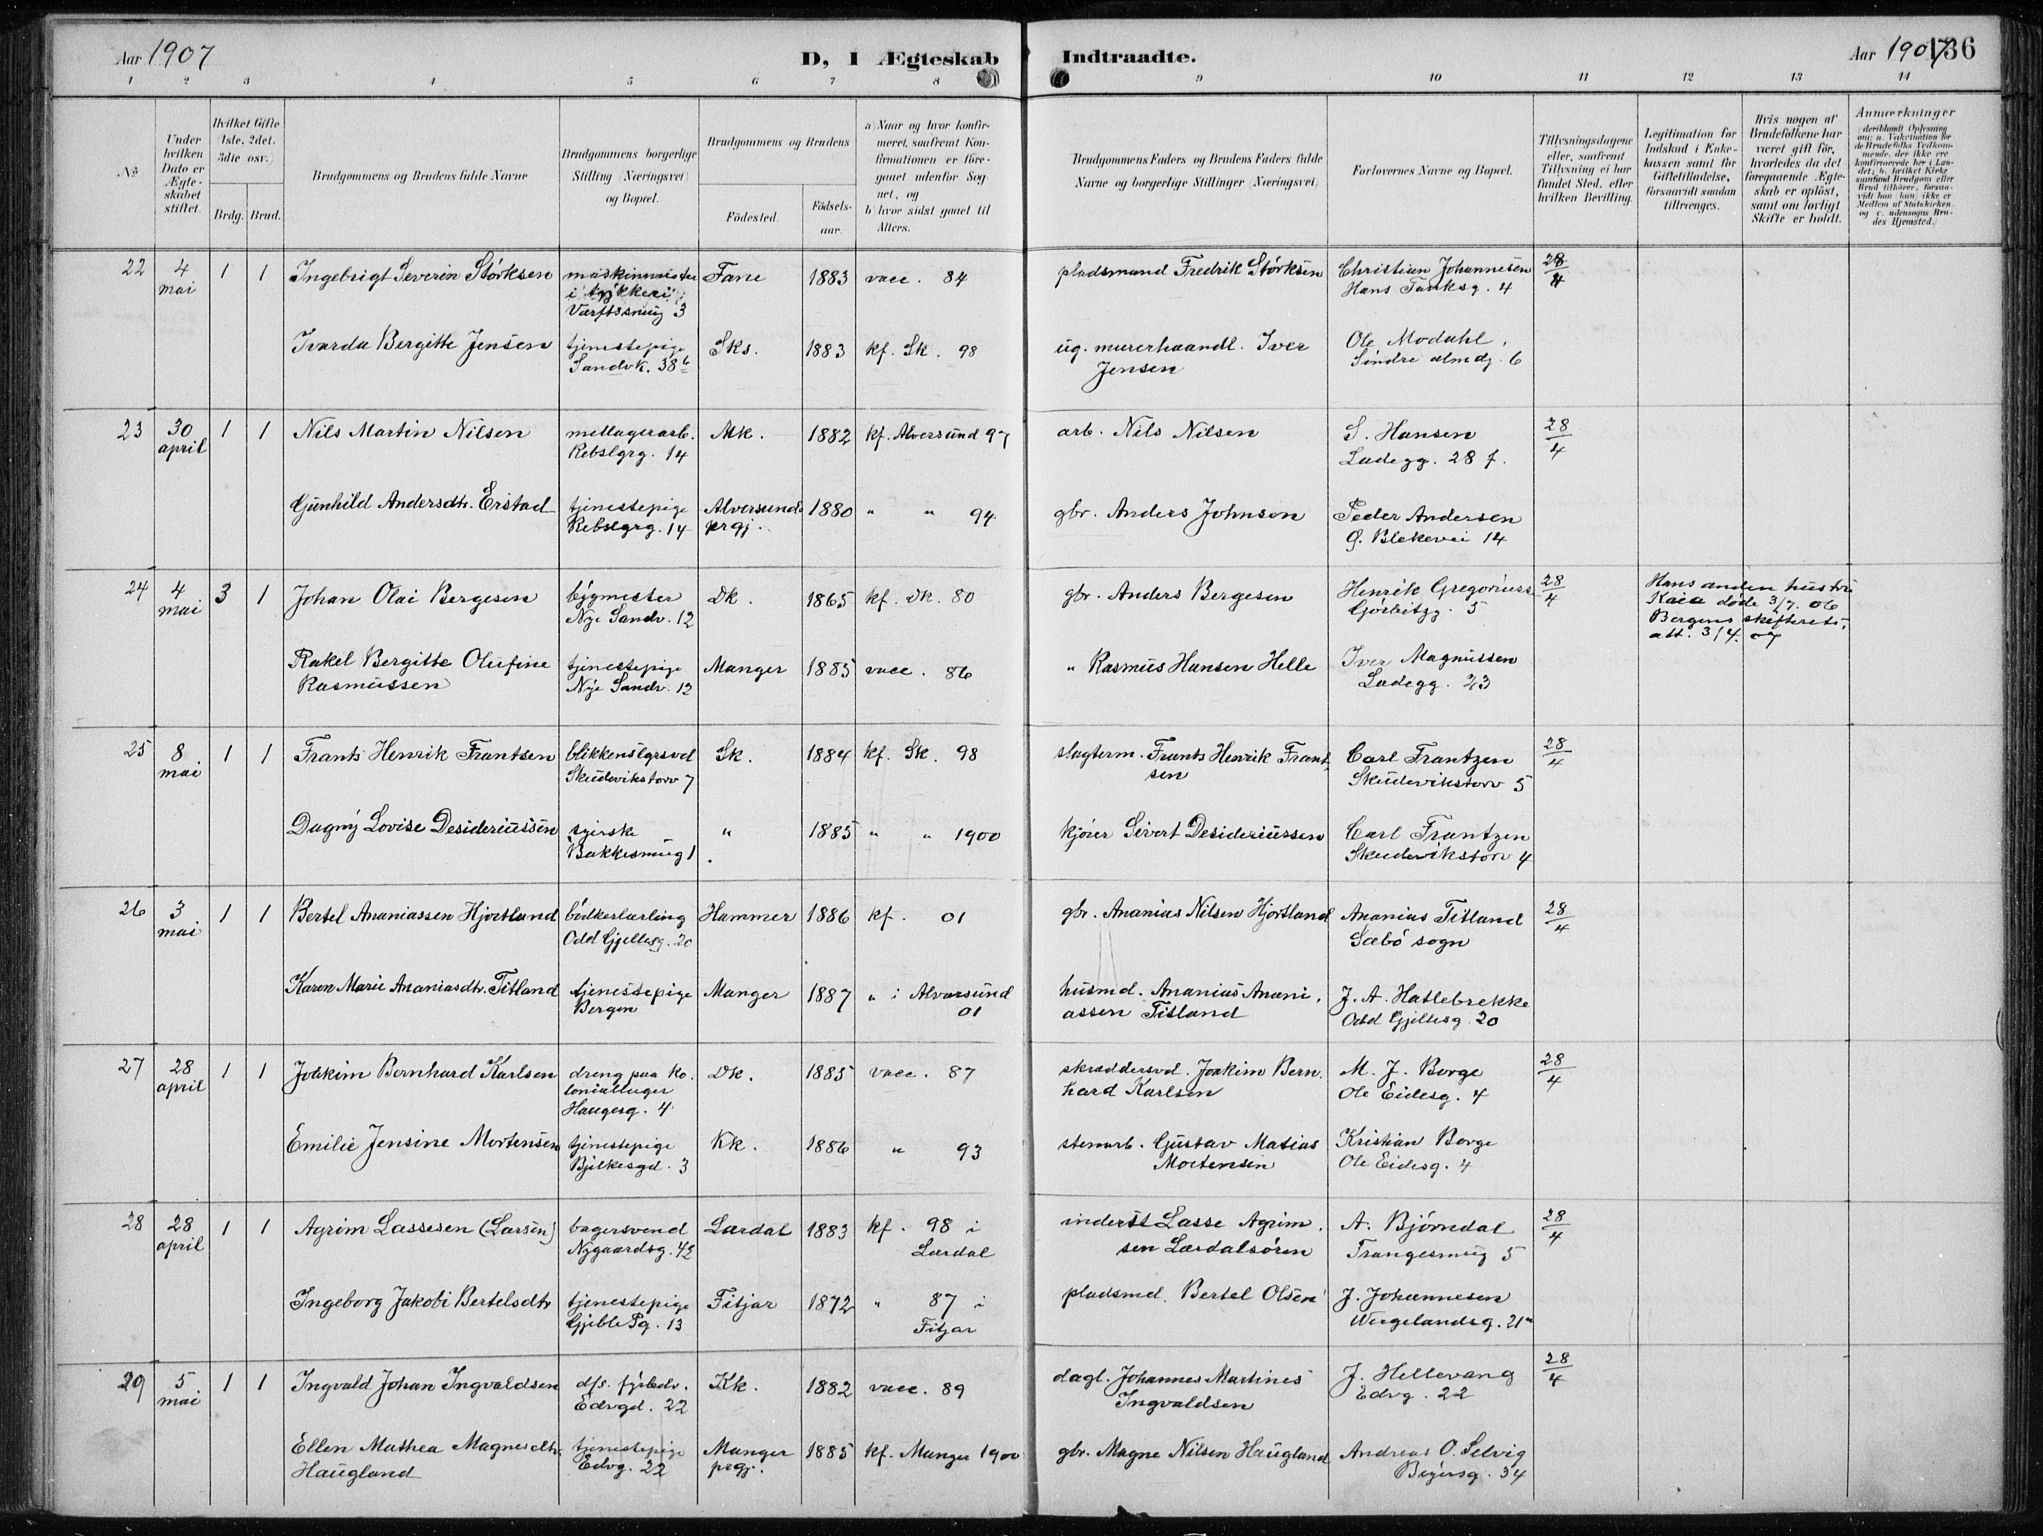 Aar 1907 D, I Ægteskab Indtraadte. Aar 1907 136
1 2 3 4 5 6 7 8 9 10 11 12 13 14
No
Under hvilken Dato er Ægteskabet stiftet.
Hvilket Gifte (1ste, 2det, 3die osv.)
Brdg. Brud.
Brudgommens og Brudens fulde Navne
Brudgommens borgerlige Stilling (Næringsvei) og Bopæl.
Brudgommens og Brudens
Fødested. Fødselsaar.
a) Naar og hvor konfirmeret, saafremt Konfirmationen er foregaaet udenfor Sognet, og
b) hvor sidst gaaet til Alters.
Brudgommens Faders og Brudens Faders fulde Navne og borgerlige Stillinger (Næringsvei)
Forlovernes Navne og Bopæl.
Tillysningsdagene eller, saafremt Tillysning ei har fundet Sted, efter hvilken Bevilling.
Legitimation for Indskud i Enkekassen samt for Giftetilladelse, forsaavidt saadan tiltrænges.
Hvis nogen af Brudefolkene har været gift før, hvorledes da det foregaaende Ægteskab er opløst, samt om lovligt Skifte er holdt.
Anmærkninger
22 4 1 1 Ingebrigt Severin Størksen maskinmester Fane 1883 vacc. 84 pladsmand Fredrik Størksen Christian Johannesen 28/4
mai i trykkeri Hans Tanksg. 4
Værftssmug 3
Ivarda Bergitte Jensen tjenestepige Sks. 1883 kf. Sk. 98 ug. murerhaandl. Iver Ole Modahl,
Sandvk. 38b Jensen Søndre almdg. 6
23 30 1 1 Nils Martin Nilsen mellagerarb. Mk. 1882 kf. Alversund 97 arb. Nils Nilsen S. Hansen 28/4
april Rebslgrg. 14 Ladegg. 28 f.
Gunhild Andersdtr. Eristad tjenestepige Alversunds 1880 " " 94 gbr. Anders Johnson Peder Andersen
Rebslgrg. 14 prgj. G. Blekevei 14
24 4 3 1 Johan Olai Bergesen bygmester Dk. 1865 kf. Dk. 80 gbr. Anders Bergesen Henrik Gregoriuss. 28/4 Hans anden hustru
mai Nye Sandv. 12 5 Kaia døde 3/7. 06
Bergens skifterets
att. 3/4. 07
Rakel Bergitte Olufine tjenestepige Manger 1885 vacc. 86 " Rasmus Hansen Helle Iver Magnussen
Rasmussen Nye Sandv. 12 Ladegg. 23
25 8 1 1 Frants Henrik Frantsen blikkenslgrsvd Sk. 1884 kf. Sk. 98 slagterm. Frants Henrik Frant- Carl Frantzen 28/4
mai Skudevikstorv 7 sen Skudevikstorv 5
Dagny Lovise Desideriussen syerske " 1885 " " 1900 kjører Sivert Desideriussen Carl Frantzen
Bakkesmug 1 Skudevikstorv 4
26 3 1 1 Bertel Ananiassen Hjortland bødkerlærling Hammer 1886 kf. 01 gbr. Ananias Nilsen Hjortland Ananias Titland 28/4
mai Odd Gjellesg. 20 Sæbø sogn
Karen Marie Ananiasdtr. Titland tjenestepige Manger 1887 " i Alversund husmd. Ananias Anani- J. A. Hatlebrekke
Bergen 01 assen Titland Odd Gjellesg. 20
27 28 1 1 Joakim Bernhard Karlsen dreng paa ko- Dk. 1885 vacc. 87 skræddersvd. Joakim Bern- M. J. Borge 28/4
april loniallager hard Karlsen Ole Eidesg. 4
Haugesg. 4
Emilie Jensine Mortensen tjenestepige Kk. 1886 " 93 stenarb. Gustav Matias Kristian Borge
Bjelkesgd. 3 Mortensen Ole Eidesg. 4
28 28 1 1 Agrim Lassesen (Larsen) bagersvend Lærdal 1883 kf. 98 i inderst Lasse Agrim- A. Bjørndal 28/4
april Nygaardsg. 42 Lærdal sen Lærdalsøren Trangesmug 5
Ingeborg Jakobi Bertelsdtr tjenestepige Fitjar 1872 " 87 i pladsmd. Bertel Olsen J. Johannesen
13 Fitjar Wergelandsg. 21a
29 5 1 1 Ingvald Johan Ingvaldsen dfs. fyrbødr. Kk. 1882 vacc. 89 dagl. Johannes Martines J. Hellevang 28/4
mai Edvgd. 22 Ingvaldsen Edvg. 22
Ellen Mathea Magnesdtr tjenestepige Manger 1885 kf. Manger 1900 gbr. Magne Nilsen Haugland Andreas O. Selvig
Haugland Edvg. 22 prgj. Bøgersg. 34